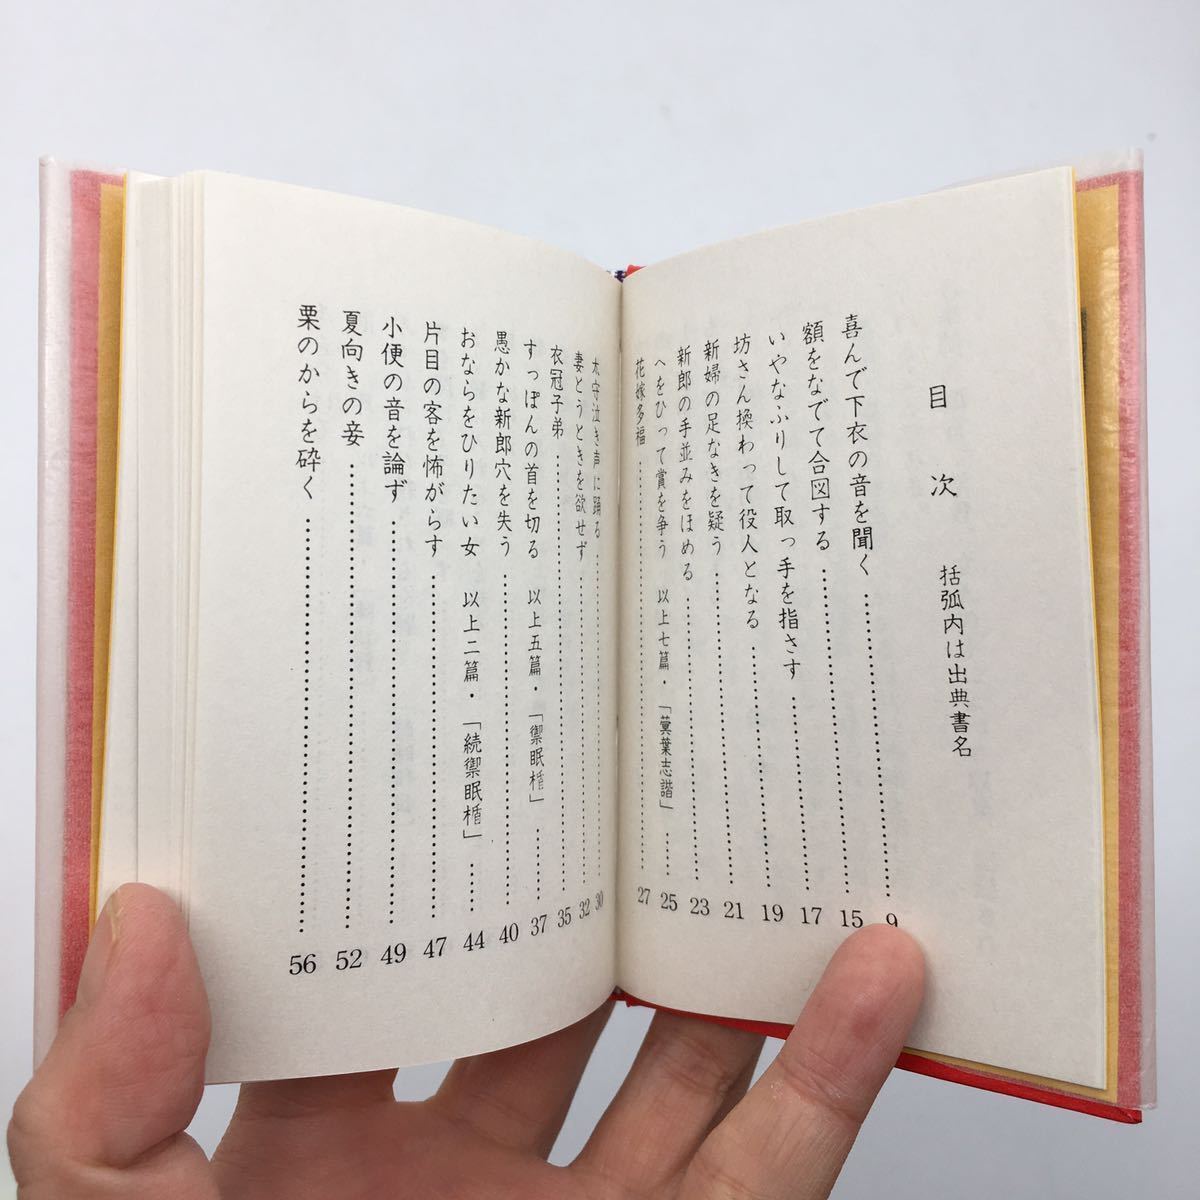 目次 括弧内は出典書名
喜んで下衣の音を聞く……………………9
額をなでて合図する……………………15
いやなふりして取っ手を指さす……………17
坊さん換わって役人となる………………19
新婦の足なきを疑う……………………21
新郎の手並みをほめる…………………23
へをひって賞を争う 以上七篇・「蓂葉志諧」……25
花嫁多福…………………………27
木守泣き声に踊る……………………30
妻とうときを欲せず……………………32
衣冠子弟…………………………35
すっぽんの首を切る 以上五篇・「禦眠楯」……37
愚かな新郎穴を失う……………………40
おならをひりたい女 以上二篇・「続禦眠楯」……44
片目の客を怖がらす……………………47
小便の音を論ず………………………49
夏向きの妾…………………………52
栗のからを砕く………………………56